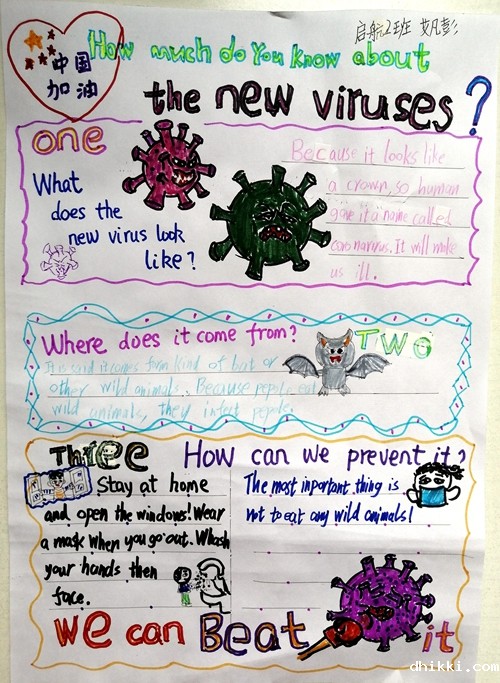 启航2班 艾凡彭
中国
加油
How much do You know about
the new viruses?
one
What
does the
new virus look
like?
Because it looks like
a crown, so human
give it a name called
coronavirus. It will make
us ill.
Where does it come from?
TWO
It is said it comes form kind of bat or
other wild animals. Because pepele eat
wild animals, they infect pepele.
Three
How can we prevent it?
Stay at home
and open the windows! Wear
a mask when you go out. Whash
your hands then
face.
The most inportant thing is
not to eat any wild animals!
We can Beat it
dhikki.com